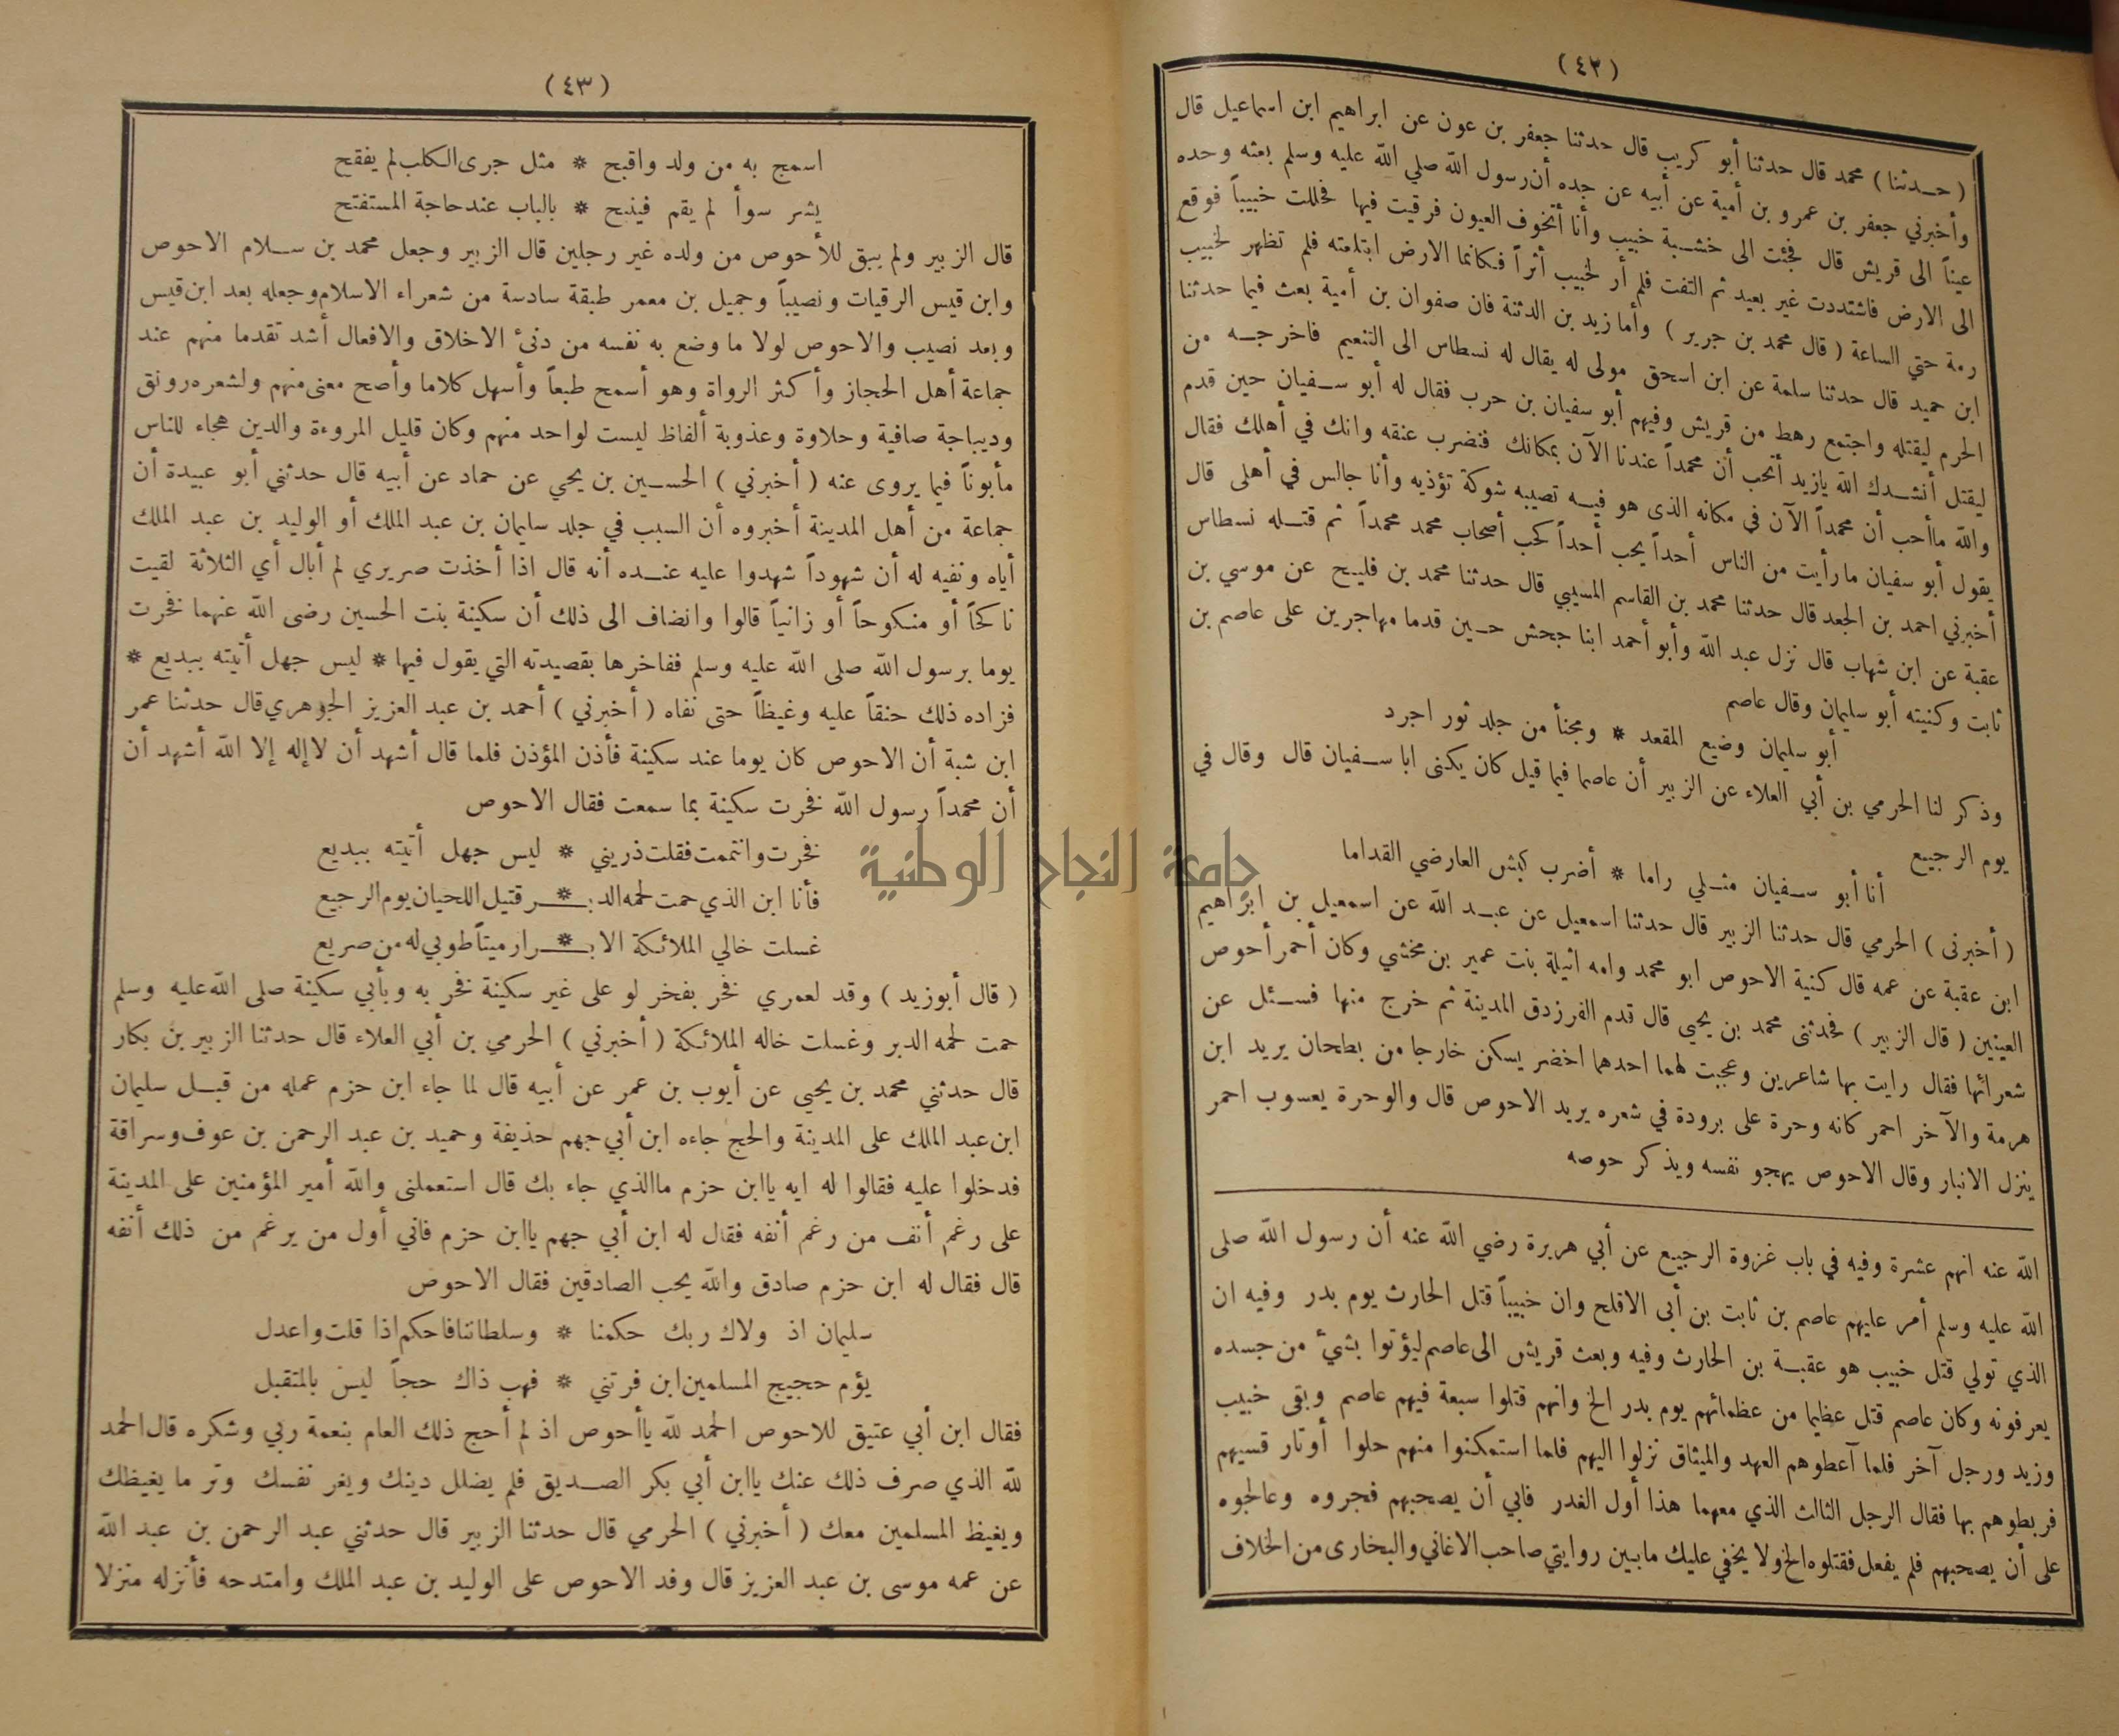 (٤٢)
(حدثنا) محمد قال حدثنا أبو كريب قال حدثنا جعفر بن عون عن ابراهيم ابن اسماعيل قال
وأخبرني جعفر بن عمرو بن أمية عن أبيه عن جده أن رسول الله صلي الله عليه وسلم بعثه وحده
عيناً الى قريش قال فجئت الى خشبة خبيب وأنا أتخوف العيون فرقيت فيها فحللت خبيباً فوقع
الى الارض فاشتددت غير بعيد ثم التفت فلم أر لخبيب أثراً فكانما الارض ابتلعته فلم تظهر لخبيب
رمة حتي الساعة (قال محمد بن جرير) وأما زيد بن الدثنة فان صفوان بن أمية بعث فيما حدثنا
ابن حميد قال حدثنا سلمة عن ابن اسحق مولى له يقال له نسطاس الى التنعيم فاخرجه من
الحرم ليقتله واجتمع رهط من قريش وفيهم أبو سفيان بن حرب فقال له أبو سفيان حين قدم
ليقتل أنشدك الله يازيد أتحب أن محمداً عندنا الآن بمكانك فنضرب عنقه وانك في أهلك فقال
والله ماأحب أن محمداً الآن في مكانه الذى هو فيه تصيبه شوكة تؤذيه وأنا جالس في أهلى قال
يقول أبو سفيان مارأيت من الناس أحداً يحب أحداً كحب أصحاب محمد محمداً ثم قتله نسطاس
أخبرني احمد بن الجعد قال حدثنا محمد بن القاسم المسيبي قال حدثنا محمد بن فليح عن موسي بن
عقبة عن ابن شهاب قال نزل عبد الله وأبو أحمد ابنا جحش حين قدما مهاجرين على عاصم بن
ثابت وكنيته أبو سليمان وقال عاصم
أبو سليمان وضيع المقعد * ومجنأ من جلد ثور اجرد
وذكر لنا الحرمي بن أبي العلاء عن الزبير أن عاصما فيما قيل كان يكنى ابا سفيان قال وقال في
يوم الرجيع
أنا أبو سفيان مثلي راما * أضرب كبش العارضي القداما
(أخبرنى) الحرمي قال حدثنا الزبير قال حدثنا اسمعيل عن عبد الله عن اسمعيل بن ابراهيم
ابن عقبة عن عمه قال كنية الاحوص ابو محمد وامه اثيلة بنت عمير بن مخشي وكان أحمر أحوص
العينين (قال الزبير) فحدثنى محمد بن يحيى قال قدم الفرزدق المدينة ثم خرج منها فسئل عن
شعرائها فقال رايت بها شاعرين وعجبت لهما احدهما اخضر يسكن خارجا من بطحان يريد ابن
هرمة والآخر احمر كانه وحرة على برودة في شعره يريد الاحوص قال والوحرة يعسوب احمر
ينزل الانبار وقال الاحوص يهجو نفسه ويذكر حوصه
الله عنه انهم عشرة وفيه في باب غزوة الرجيع عن أبي هريرة رضي الله عنه أن رسول الله صلى
الله عليه وسلم أمر عليهم عاصم بن ثابت بن أبى الاقلح وان خبيباً قتل الحارث يوم بدر وفيه ان
الذي تولي قتل خبيب هو عقبة بن الحارث وفيه وبعث قريش الى عاصم ليؤتوا بشئ من جسده
يعرفونه وكان عاصم قتل عظيما من عظمائهم يوم بدر الخ وانهم قتلوا سبعة فيهم عاصم وبقى خبيب
وزيد ورجل آخر فلما آعطوهم العهد والميثاق نزلوا اليهم فلما استمكنوا منهم حلوا أوتار قسيهم
فربطوهم بها فقال الرجل الثالث الذي معهما هذا أول الغدر فابي أن يصحبهم فجروه وعالجوه
على أن يصحبهم فلم يفعل فقتلوه الخ ولا يخفي عليك مابين روايتي صاحب الاغاني والبخارى من الخلاف
(٤٣)
اسمج به من ولد واقبح * مثل جرى الكلب لم يفقح
يشر سوأ لم يقم فينبح * بالباب عند حاجة المستفتح
قال الزبير ولم يبق للأحوص من ولده غير رجلين قال الزبير وجعل محمد بن سلام الاحوص
وابن قيس الرقيات ونصيباً وجميل بن معمر طبقة سادسة من شعراء الاسلام وجعله بعد ابن قيس
وبعد نصيب والاحوص لولا ما وضع به نفسه من دنئ الاخلاق والافعال أشد تقدما منهم عند
جماعة أهل الحجاز وأكثر الرواة وهو أسمح طبعاً وأسهل كلاما وأصح معنى منهم ولشعره رونق
وديباجة صافية وحلاوة وعذوبة ألفاظ ليست لواحد منهم وكان قليل المروءة والدين هجاء للناس
مأبوناً فيما يروى عنه (أخبرني) الحسين بن يحي عن حماد عن أبيه قال حدثني أبو عبيدة أن
جماعة من أهل المدينة أخبروه أن السبب في جلد سليمان بن عبد الملك أو الوليد بن عبد الملك
أياه ونفيه له أن شهوداً شهدوا عليه عنده أنه قال اذا أخذت صريري لم أبال أي الثلاثة لقيت
ناكحاً أو منكوحاً أو زانياً قالوا وانضاف الى ذلك أن سكينة بنت الحسين رضى الله عنهما فخرت
يوما برسول الله صلى الله عليه وسلم ففاخرها بقصيدته التي يقول فيها * ليس جهل أتيته ببديع *
فزاده ذلك حنقاً عليه وغيظاً حتى نفاه (أخبرني) أحمد بن عبد العزيز الجوهري قال حدثنا عمر
ابن شبة أن الاحوص كان يوما عند سكينة فأذن المؤذن فلما قال أشهد أن لاإله إلا الله أشهد أن
أن محمداً رسول الله فخرت سكينة بما سمعت فقال الاحوص
فخرت وانتمت فقلت ذريني * ليس جهل أتيته ببديع
فأنا ابن الذي حمت لحمه الدبـ * ـر قتيل اللحيان يوم الرجيع
غسلت خالي الملائكة الابـ * ـرار ميتاً طوبي له من صريع
(قال أبوزيد) وقد لعمري فخر بفخر لو على غير سكينة فخر به وبأبي سكينة صلى الله عليه وسلم
حمت لحمه الدبر وغسلت خاله الملائكة (أخبرني) الحرمي بن أبي العلاء قال حدثنا الزبير بن بكار
قال حدثني محمد بن يحيى عن أيوب بن عمر عن أبيه قال لما جاء ابن حزم عمله من قبل سليمان
ابن عبد الملك على المدينة والحج جاءه ابن أبي جهم حذيفة وحميد بن عبد الرحمن بن عوف وسراقة
فدخلوا عليه فقالوا له ايه ياابن حزم ماالذي جاء بك قال استعملنى والله أمير المؤمنين على المدينة
على رغم أنف من رغم أنفه فقال له ابن أبي جهم ياابن حزم فاني أول من يرغم من ذلك أنفه
قال فقال له ابن حزم صادق والله يحب الصادقين فقال الاحوص
سليمان اذ ولاك ربك حكمنا * وسلطاننا فاحكم اذا قلت واعدل
يؤم حجيج المسلمين ابن فرتني * فهب ذاك حجاً ليس بالمتقبل
فقال ابن أبي عتيق للاحوص الحمد لله ياأحوص اذ لم أحج ذلك العام بنعمة ربي وشكره قال الحمد
لله الذي صرف ذلك عنك ياابن أبي بكر الصديق فلم يضلل دينك ويغر نفسك وتر ما يغيظك
ويغيظ المسلمين معك (أخبرني) الحرمي قال حدثنا الزبير قال حدثني عبد الرحمن بن عبد الله
عن عمه موسى بن عبد العزيز قال وفد الاحوص على الوليد بن عبد الملك وامتدحه فأنزله منزلا
جامعة النجاح الوطنية